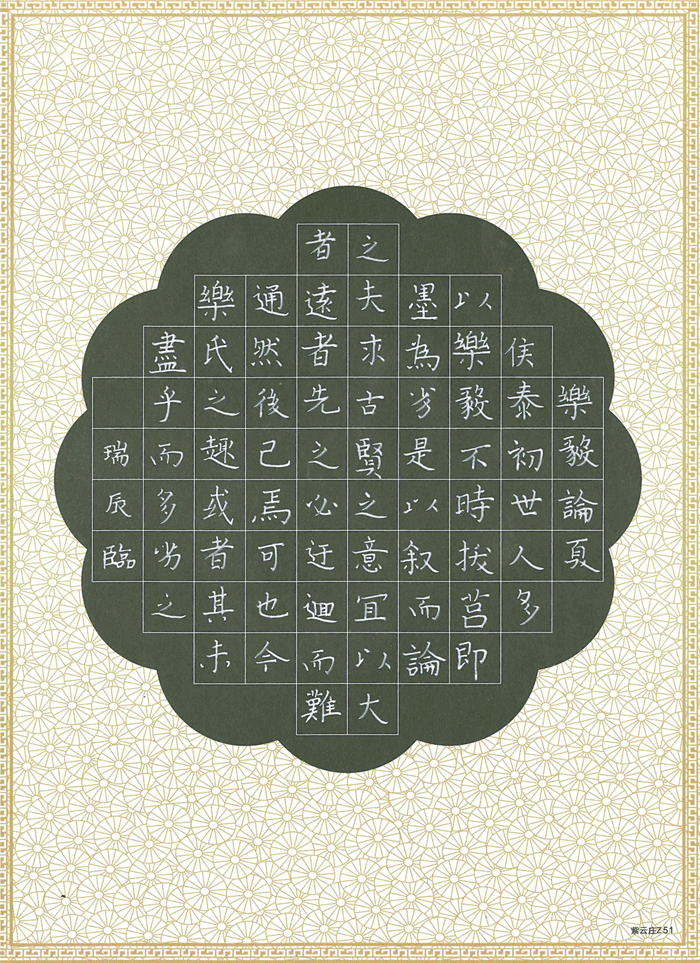 樂毅論夏
侯泰初世人多
以樂毅不時拔莒即
墨為劣是以叙而論
之夫求古賢之意宜以大
者遠者先之必迂迴而難
通然後己焉可也今
樂氏之趣或者其未
盡乎而多劣之
瑞辰臨
紫云庄Z51